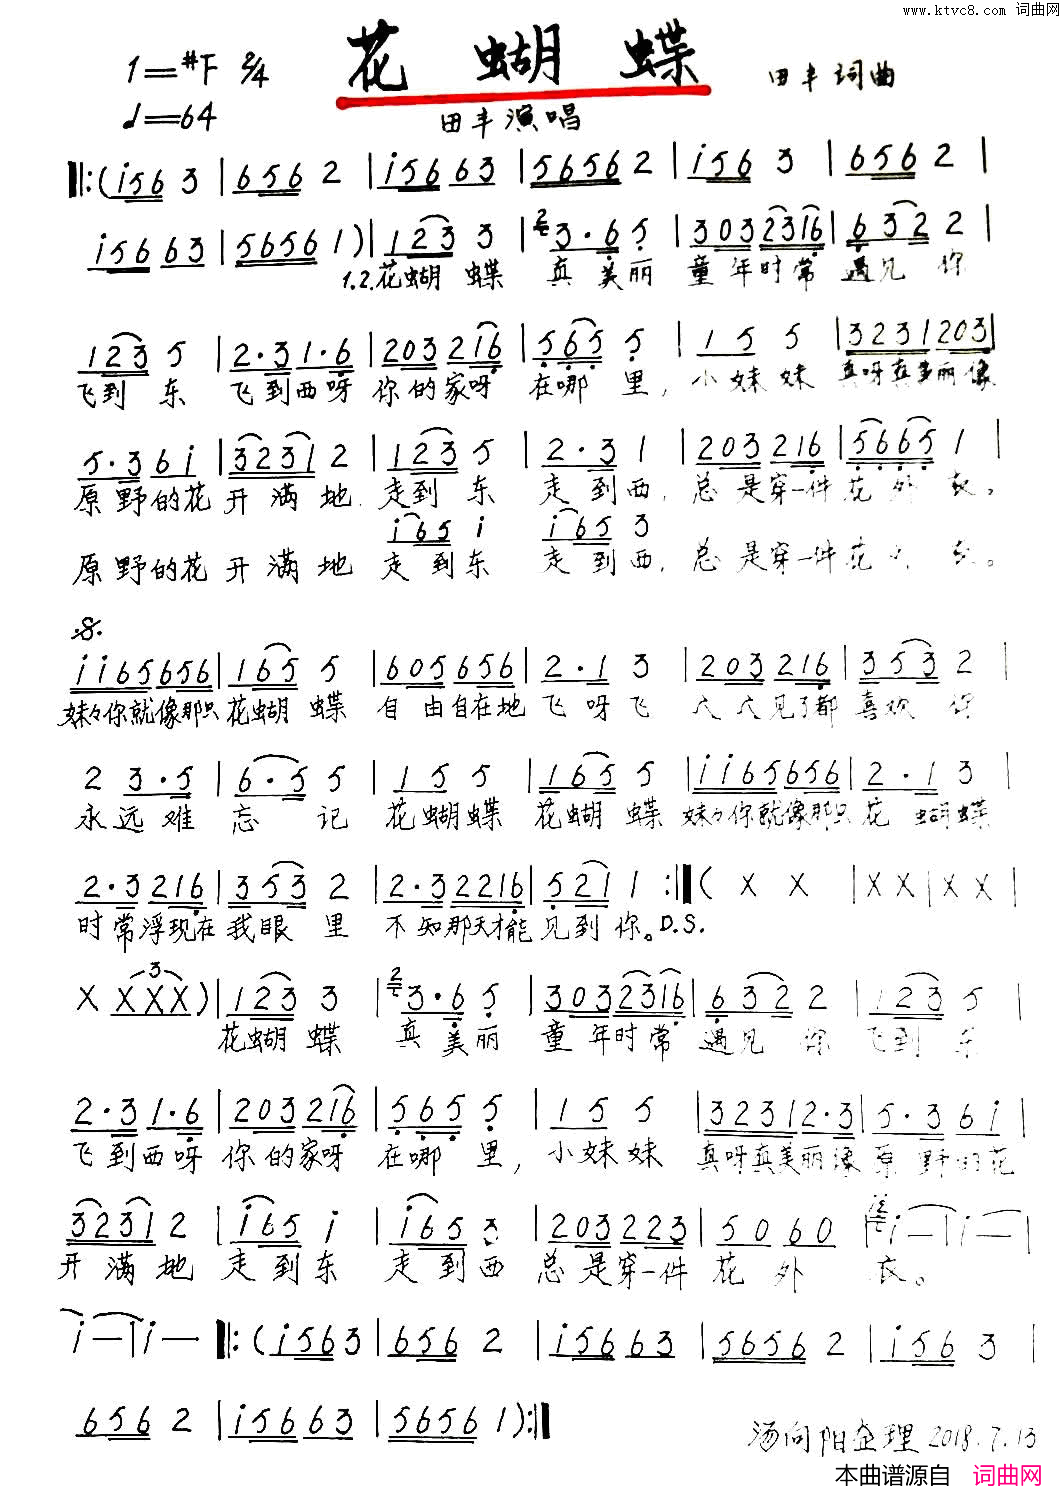 www.ktvc8.com 词曲网
花蝴蝶
1=#F 2/4
田丰词曲
♩=64
田丰演唱
‖:(i56 3 | 656 2 | i56 63 | 56562 | i56 3 | 656 2 |
i56 63 | 5656 1) | 123 3 | 3·6 5 | 303 2316 | 632 2 |
1.2.花蝴蝶 真美丽 童年时常遇见你
123 5 | 2·3 1·6 | 203 216 | 565 5 | 1 5 5 | 3231 203 |
飞到东 飞到西呀 你的家呀 在哪里, 小妹妹 真呀真美丽像
5·3 6i | 3231 2 | 123 5 | 2·3 1 | 203 216 | 5665 1 |
原野的花开满地.走到东 走到西.总是穿一件花外衣。
i65 i i65 3
原野的花开满地走到东 走到西.总是穿一件花 衣。
𝄋
ii65656 | 165 5 | 605 656 | 2·1 3 | 203 216 | 353 2 |
妹々你就像那只花蝴蝶 自由自在地飞呀飞 人人见了都喜欢你
2 3·5 | 6·5 5 | 1 5 5 | 165 5 | ii65656 | 2·1 3 |
永远难忘记 花蝴蝶 花蝴蝶 妹々你就像那只花蝴蝶
2·3 216 | 353 2 | 2·3 2216 | 521 1 :‖( X X | XX | XX |
时常浮现在我眼里 不知那天才能见到你。D.S.
3
X XXX) | 123 3 | 3·6 5 | 303 2316 | 632 2 | 123 5 |
花蝴蝶 真美丽 童年时常遇见你 飞到东
2·3 1·6 | 203 216 | 565 5 | 1 5 5 | 3231 2·3 | 5·3 6i |
飞到西呀 你的家呀 在哪里, 小妹妹 真呀真美丽像原野的花
3231 2 | i65 i | i65 3 | 203 223 | 50 60 | i— | i— |
开满地 走到东 走到西 总是穿一件花外衣。
i— | i— ‖:(i563 | 656 2 | i56 63 | 5656 2 | i56 3 |
656 2 | i56 63 | 5656 1):‖
汤向阳企理 2018.7.13
本曲谱源自 词曲网